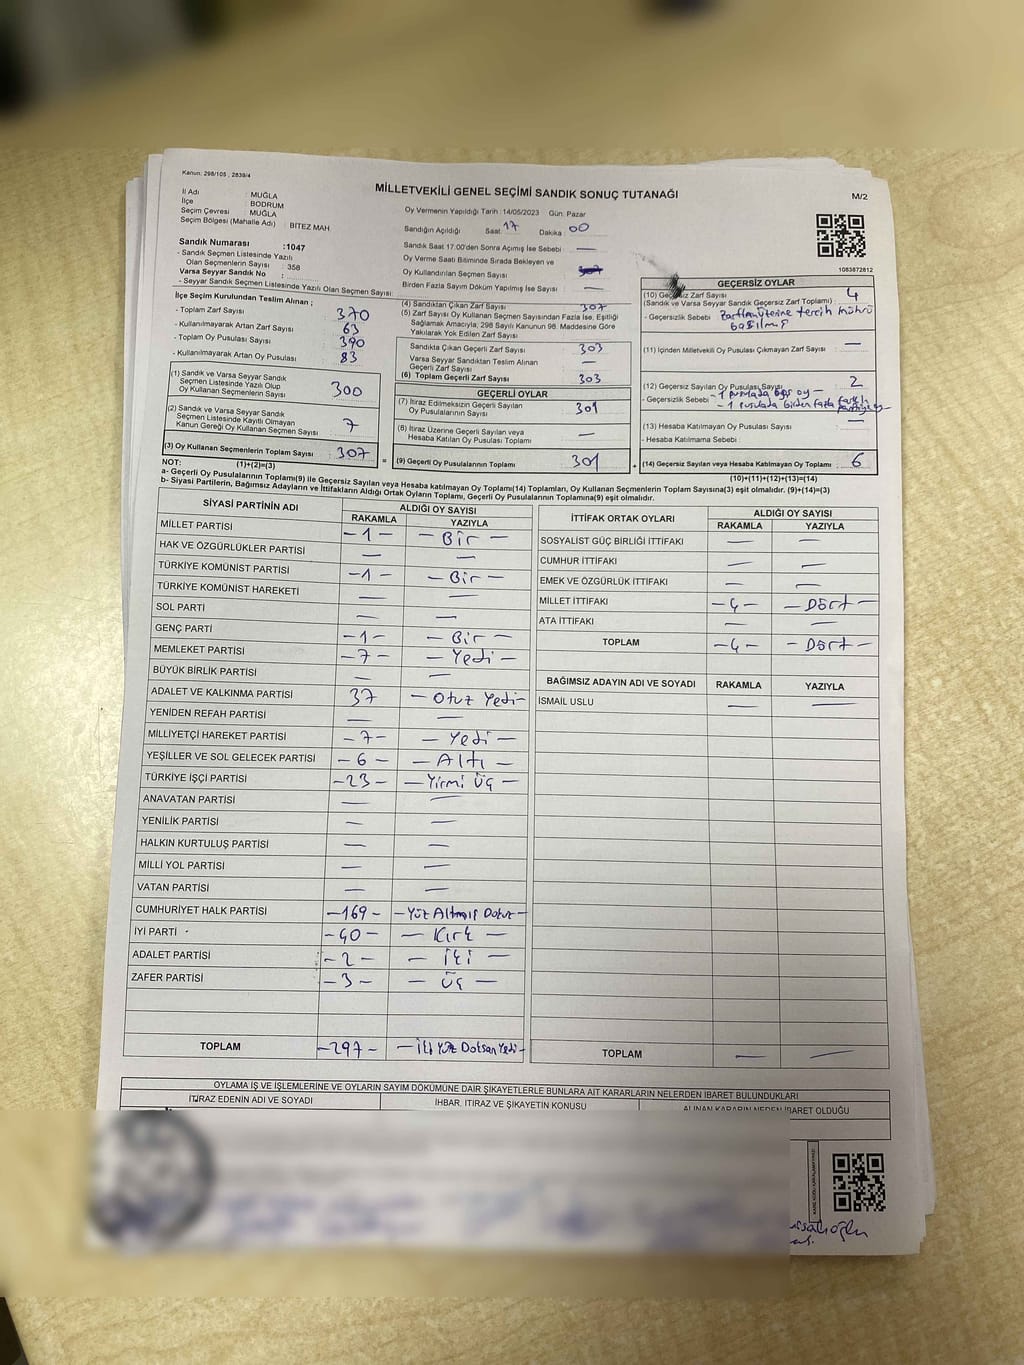 Kanun: 298/105 , 2839/4
MİLLETVEKİLİ GENEL SEÇİMİ SANDIK SONUÇ TUTANAĞI
M/2
İl Adı : MUĞLA
İlçe : BODRUM
Seçim Çevresi : MUĞLA
Seçim Bölgesi (Mahalle Adı) : BİTEZ MAH.
Sandık Numarası :1047
- Sandık Seçmen Listesinde Yazılı
Olan Seçmenlerin Sayısı : 358
Varsa Seyyar Sandık No :
- Seyyar Sandık Seçmen Listesinde Yazılı Olan Seçmen Sayısı:
Oy Vermenin Yapıldığı Tarih :14/05/2023 Gün: Pazar
Sandığın Açıldığı Saat 17 Dakika 00
Sandık Saat 17.00'den Sonra Açımış İse Sebebi —
Oy Verme Saati Bitiminde Sırada Bekleyen ve
Oy Kullandırılan Seçmen Sayısı
Birden Fazla Sayım Döküm Yapılmış İse Sayısı —
1083872812
İlçe Seçim Kurulundan Teslim Alınan ;
- Toplam Zarf Sayısı : 370
- Kullanılmayarak Artan Zarf Sayısı : 63
- Toplam Oy Pusulası Sayısı : 390
- Kullanılmayarak Artan Oy Pusulası : 83
(1) Sandık ve Varsa Seyyar Sandık
Seçmen Listesinde Yazılı Olup
Oy Kullanan Seçmenlerin Sayısı : 300
(2) Sandık ve Varsa Seyyar Sandık
Seçmen Listesinde Kayıtlı Olmayan
Kanun Gereği Oy Kullanan Seçmen Sayısı : 7
(3) Oy Kullanan Seçmenlerin Toplam Sayısı : 307
(1)+(2)=(3)
(4) Sandıktan Çıkan Zarf Sayısı : 307
(5) Zarf Sayısı Oy Kullanan Seçmen Sayısından Fazla İse, Eşitliği
Sağlamak Amacıyla, 298 Sayılı Kanunun 98. Maddesine Göre
Yakılarak Yok Edilen Zarf Sayısı :
Sandıkta Çıkan Geçerli Zarf Sayısı : 303
Varsa Seyyar Sandıktan Teslim Alınan
Geçerli Zarf Sayısı : —
(6) Toplam Geçerli Zarf Sayısı : 303
GEÇERLİ OYLAR
(7) İtiraz Edilmeksizin Geçerli Sayılan
Oy Pusulalarının Sayısı : 301
(8) İtiraz Üzerine Geçerli Sayılan veya
Hesaba Katılan Oy Pusulası Toplamı : —
= (9) Geçerli Oy Pusulalarının Toplamı : 301
GEÇERSİZ OYLAR
(10) Geçersiz Zarf Sayısı : 4
(Sandık ve Varsa Seyyar Sandık Geçersiz Zarf Toplamı)
- Geçersizlik Sebebi : Zarfların üzerine tercih mührü
basılmış
(11) İçinden Milletvekili Oy Pusulası Çıkmayan Zarf Sayısı : —
(12) Geçersiz Sayılan Oy Pusulası Sayısı : 2
- Geçersizlik Sebebi : -1 pusulada boş oy —
- 1 pusulada birden fazla farklı
partiye oy
(13) Hesaba Katılmayan Oy Pusulası Sayısı : —
- Hesaba Katılmama Sebebi :
+ (14) Geçersiz Sayılan veya Hesaba Katılmayan Oy Toplamı : 6
(10)+(11)+(12)+(13)=(14)
NOT:
a- Geçerli Oy Pusulalarının Toplamı(9) ile Geçersiz Sayılan veya Hesaba katılmayan Oy Toplamı(14) Toplamları, Oy Kullanan Seçmenlerin Toplam Sayısına(3) eşit olmalıdır. (9)+(14)=(3)
b- Siyasi Partilerin, Bağımsız Adayların ve İttifakların Aldığı Ortak Oyların Toplamı, Geçerli Oy Pusulalarının Toplamına(9) eşit olmalıdır.
SİYASİ PARTİNİN ADI ALDIĞI OY SAYISI
RAKAMLA YAZIYLA
MİLLET PARTİSİ -1- - Bir -
HAK VE ÖZGÜRLÜKLER PARTİSİ — —
TÜRKİYE KOMÜNİST PARTİSİ -1- - Bir -
TÜRKİYE KOMÜNİST HAREKETİ — —
SOL PARTİ — —
GENÇ PARTİ -1- - Bir -
MEMLEKET PARTİSİ -7- - Yedi -
BÜYÜK BİRLİK PARTİSİ — —
ADALET VE KALKINMA PARTİSİ 37 - Otuz Yedi -
YENİDEN REFAH PARTİSİ — —
MİLLİYETÇİ HAREKET PARTİSİ -7- - Yedi -
YEŞİLLER VE SOL GELECEK PARTİSİ -6- - Altı -
TÜRKİYE İŞÇİ PARTİSİ -23- - Yirmi Üç -
ANAVATAN PARTİSİ — —
YENİLİK PARTİSİ — —
HALKIN KURTULUŞ PARTİSİ — —
MİLLİ YOL PARTİSİ — —
VATAN PARTİSİ — —
CUMHURİYET HALK PARTİSİ -169- - Yüz Altmış Dokuz -
İYİ PARTİ -40- - Kırk -
ADALET PARTİSİ -2- - İki -
ZAFER PARTİSİ -3- - Üç -
TOPLAM -297- - İki Yüz Doksan Yedi -
İTTİFAK ORTAK OYLARI ALDIĞI OY SAYISI
RAKAMLA YAZIYLA
SOSYALİST GÜÇ BİRLİĞİ İTTİFAKI — —
CUMHUR İTTİFAKI — —
EMEK VE ÖZGÜRLÜK İTTİFAKI — —
MİLLET İTTİFAKI -4- - Dört -
ATA İTTİFAKI — —
TOPLAM -4- - Dört -
BAĞIMSIZ ADAYIN ADI VE SOYADI RAKAMLA YAZIYLA
İSMAİL USLU — —
TOPLAM — —
OYLAMA İŞ VE İŞLEMLERİNE VE OYLARIN SAYIM DÖKÜMÜNE DAİR ŞİKAYETLERLE BUNLARA AİT KARARLARIN NELERDEN İBARET BULUNDUKLARI
İTİRAZ EDENİN ADI VE SOYADI İHBAR, İTİRAZ VE ŞİKAYETİN KONUSU ALINAN KARARIN NEDEN İBARET OLDUĞU